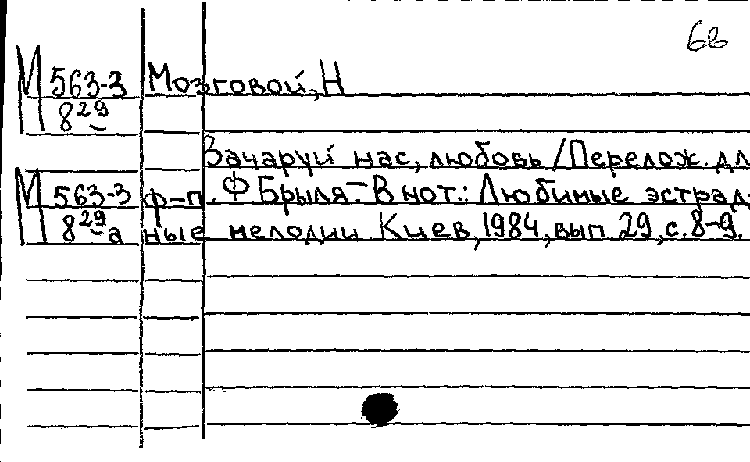 6в
М 563-3 Мозговой, Н
8 29
Зачаруй нас, любовь / Перелож. дл
М 563-3 ф-п. Ф Брыля.- В нот.: Любимые эстрад-
8 29-а ные мелодии Киев, 1984, вып 29, с. 8-9.